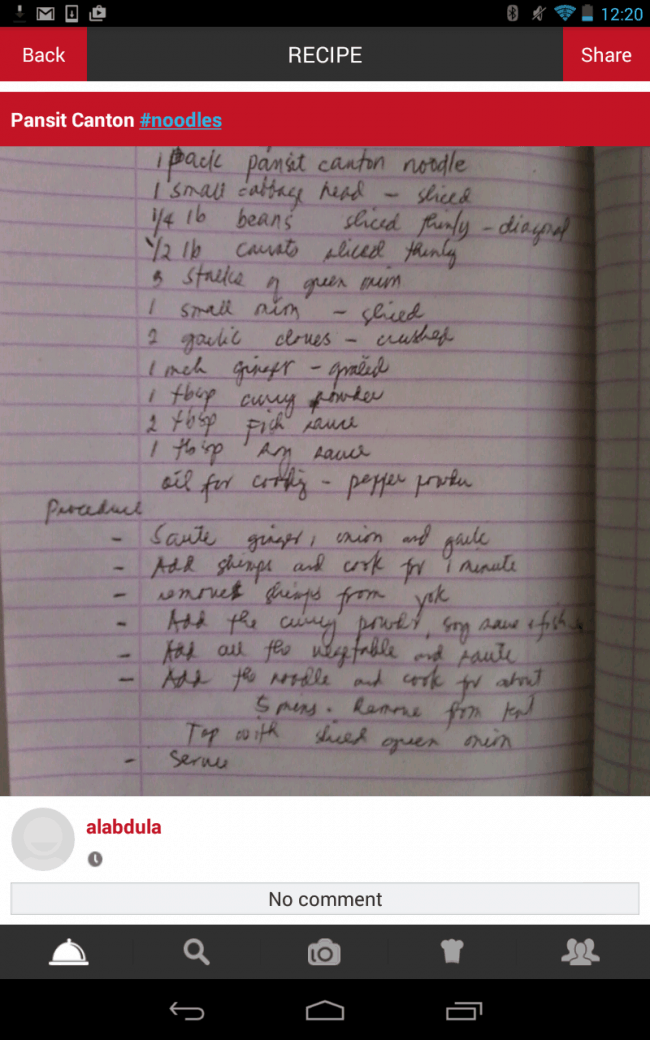 12:20
Back RECIPE Share
Pansit Canton #noodles
1 pack pansit canton noodle
1 small cabbage head - sliced
1/4 lb beans sliced thinly - diagonal
1/2 lb carrots sliced thinly
3 stalks of green onion
1 small onion - sliced
2 garlic cloves - crushed
1 inch ginger - grated
1 tbsp curry powder
2 tbsp fish sauce
1 tbsp soy sauce
oil for cooking - pepper powder
Procedure
- Saute ginger, onion and garlic
- Add shrimps and cook for 1 minute
- remove shrimps from
- Add the curry powder, soy sauce + fish
- Add all the vegetable and saute
- Add the noodle and cook for about
5 mins. Remove from
Top with sliced green onion
- Serve
alabdula
No comment